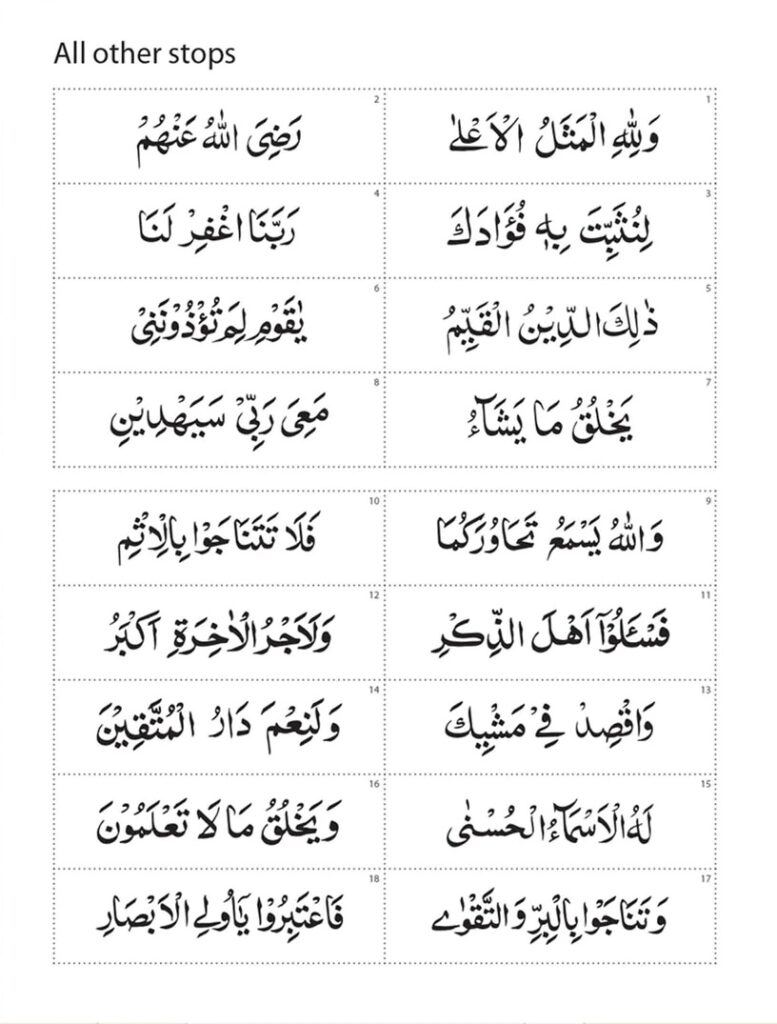 All other stops
1
وَلِلّٰهِ الْمَثَلُ الْاَعْلٰى
2
رَضِیَ اللّٰهُ عَنْهُمْ
3
لِنُثَبِّتَ بِهٖ فُؤَادَكَ
4
رَبَّنَا اغْفِرْ لَنَا
5
ذٰلِكَ الدِّيْنُ الْقَيِّمُ
6
يٰقَوْمِ لِمَ تُؤْذُوْنَنِیْ
7
يَخْلُقُ مَا يَشَآءُ
8
مَعِیَ رَبِّیْ سَيَهْدِيْنِ
9
وَاللّٰهُ يَسْمَعُ تَحَاوُرَكُمَا
10
فَلَا تَتَنَاجَوْا بِالْاِثْمِ
11
فَسْـَٔلُوْۤا اَهْلَ الذِّكْرِ
12
وَلَاَجْرُ الْاٰخِرَةِ اَكْبَرُ
13
وَاقْصِدْ فِیْ مَشْيِكَ
14
وَلَنِعْمَ دَارُ الْمُتَّقِيْنَ
15
لَهُ الْاَسْمَآءُ الْحُسْنٰى
16
وَيَخْلُقُ مَا لَا تَعْلَمُوْنَ
17
وَتَنَاجَوْا بِالْبِرِّ وَالتَّقْوٰى
18
فَاعْتَبِرُوْا يٰۤاُولِی الْاَبْصَارِ